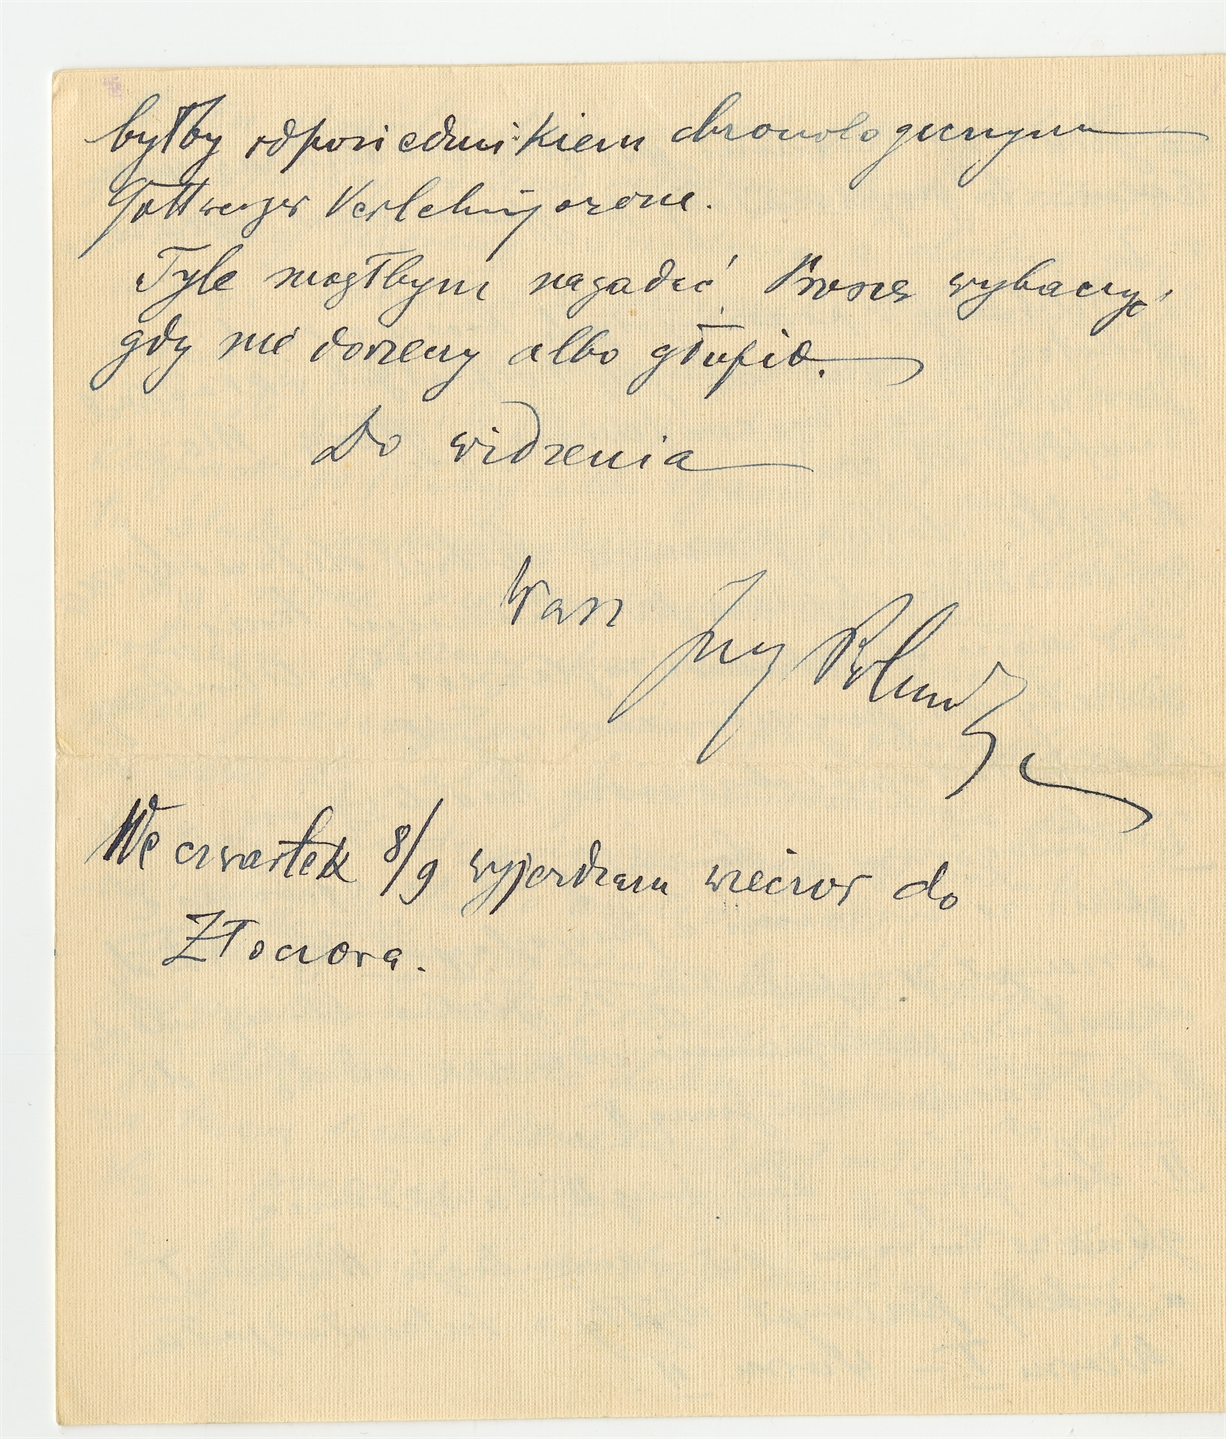 byłby odpowiednikiem chronologicznym
Göttweiger Verlehmungszone.
Tyle mógłbym nagadać. Proszę wybaczyć,
gdy nie dorzeczy albo głupio.
Do widzenia
Wasz Jerzy Polanski
We czwartek 8/9 wyjeżdżam wieczór do
Złoczowa.